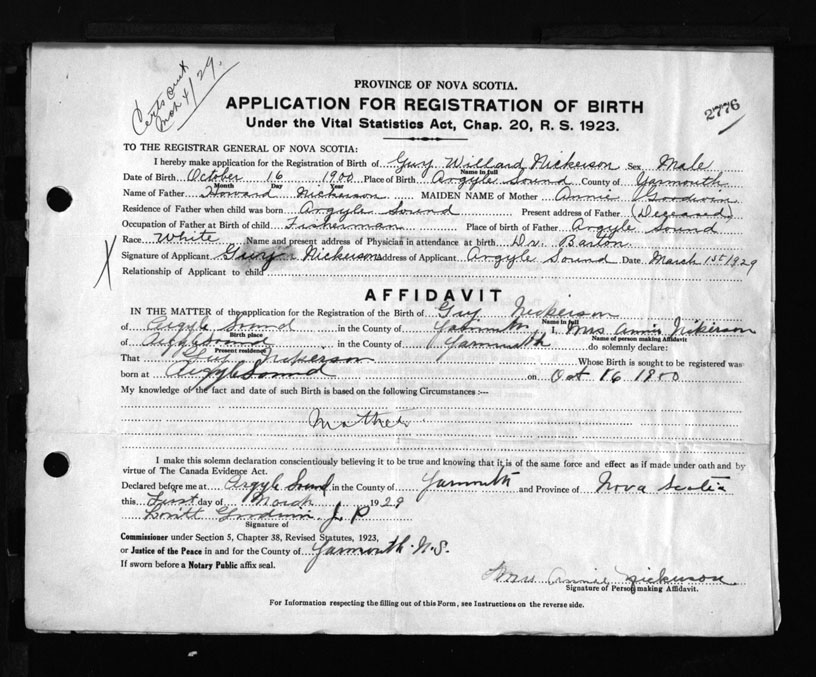 Certs out
Mch 4/29.
2776
PROVINCE OF NOVA SCOTIA.
APPLICATION FOR REGISTRATION OF BIRTH
Under the Vital Statistics Act, Chap. 20, R. S. 1923.
TO THE REGISTRAR GENERAL OF NOVA SCOTIA:
I hereby make application for the Registration of Birth of Guy Willard Nickerson Sex Male
Name in full
Date of Birth October 16 1900 Place of Birth Argyle Sound County of Yarmouth
Month Day Year
Name of Father Howard Nickerson MAIDEN NAME of Mother Annie Goodwin
Residence of Father when child was born Argyle Sound Present address of Father (Deceased)
Occupation of Father at Birth of child Fisherman Place of birth of Father Argyle Sound
Race White Name and present address of Physician in attendance at birth Dr. Barton.
X Signature of Applicant Guy Nickerson Address of Applicant Argyle Sound Date March 1st 1929
Relationship of Applicant to child
AFFIDAVIT
IN THE MATTER of the application for the Registration of the Birth of Guy Nickerson
Name in full
of Argyle Sound in the County of Yarmouth I, Mrs Annie Nickerson
Birth place Name of person making Affidavit
of Argyle Sound in the County of Yarmouth do solemnly declare:
Present residence
That Guy Nickerson Whose Birth is sought to be registered was
born at Argyle Sound on Oct 16 1900
My knowledge of the fact and date of such Birth is based on the following Circumstances :—
Mother
I make this solemn declaration conscientiously believing it to be true and knowing that it is of the same force and effect as if made under oath and by
virtue of The Canada Evidence Act.
Declared before me at Argyle Sound in the County of Yarmouth and Province of Nova Scotia
this First day of March 1929
Lovitt Goodwin J. P
Signature of
Commissioner under Section 5, Chapter 38, Revised Statutes, 1923,
or Justice of the Peace in and for the County of Yarmouth N.S.
If sworn before a Notary Public affix seal.
Mrs Annie Nickerson
Signature of Person making Affidavit.
For Information respecting the filling out of this Form, see Instructions on the reverse side.